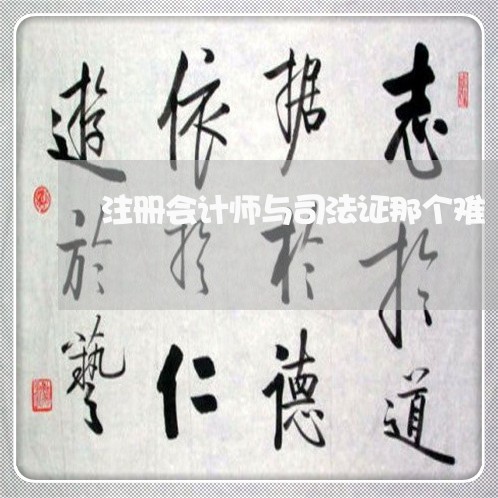 志於道
据於德
依於仁
遊於藝
注册会计师与司法证那个难